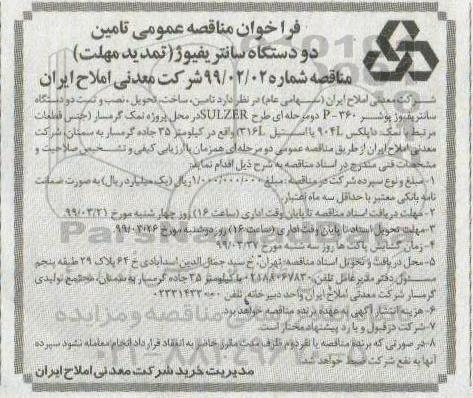 فراخوان مناقصه عمومی تامین
دو دستگاه سانتریفیوژ (تمدید مهلت)
مناقصه شماره ۹۹/۰۲/۰۲ شرکت معدنی املاح ایران
شرکت معدنی املاح ایران (سهامی عام) در نظر دارد تامین، ساخت، تحویل، نصب و تست دو دستگاه
سانتریفیوژ پوشر P-۳۶۰ دو مرحله ای طرح SULZER در محل پروژه نمک گرمسار (جنس قطعات
مرتبط با نمک: داپلکس ۹۰۴L یا استیل ۳۱۶L) واقع در کیلومتر ۳۵ جاده گرمسار به سمنان، شرکت
معدنی املاح ایران از طریق مناقصه عمومی دو مرحله ای همزمان با ارزیابی کیفی و تشخیص صلاحیت و
مشخصات فنی مندرج در اسناد مناقصه به شرح ذیل اقدام نماید:
۱- مبلغ و نوع سپرده شرکت در مناقصه: مبلغ ۱/۰۰۰/۰۰۰/۰۰۰ ریال (یک میلیارد ریال) به صورت ضمانت
نامه بانکی معتبر با حداقل سه ماه اعتبار.
۲- مهلت دریافت اسناد مناقصه تا پایان وقت اداری (ساعت ۱۶) روز چهار شنبه مورخ ۹۹/۰۳/۲۱
۳- مهلت تحویل اسناد تا پایان وقت اداری (ساعت ۱۶) روز دوشنبه مورخ ۹۹/۰۳/۲۶
۴- زمان گشایش پاکت ها روز سه شنبه مورخ ۹۹/۰۳/۲۷
۵- محل دریافت و تحویل اسناد مناقصه: تهران، خ سید جمال الدین اسدآبادی خ ۶۴ پلاک ۲۹ طبقه پنجم
مسئول دفتر مدیرعامل تلفن: ۰۲۱۸۸۰۶۷۸۳۰ یا کیلومتر ۳۵ جاده گرمسار به سمنان، مجتمع تولیدی
گرمسار شرکت معدنی املاح ایران واحد دبیرخانه تلفن ۰۲۳۳۱۴۳۳۰۴۰
۶- هزینه انتشار آگهی به عهده برنده مناقصه خواهد بود.
۷- شرکت در قبول و یا رد پیشنهاد مختار است.
۸- در صورتی که برنده مناقصه یا نفر دوم ظرف مدت مقرر حاضر به انعقاد قرارداد انجام معامله نشود سپرده
آنها به نفع شرکت ضبط خواهد شد.
مدیریت خرید شرکت معدنی املاح ایران